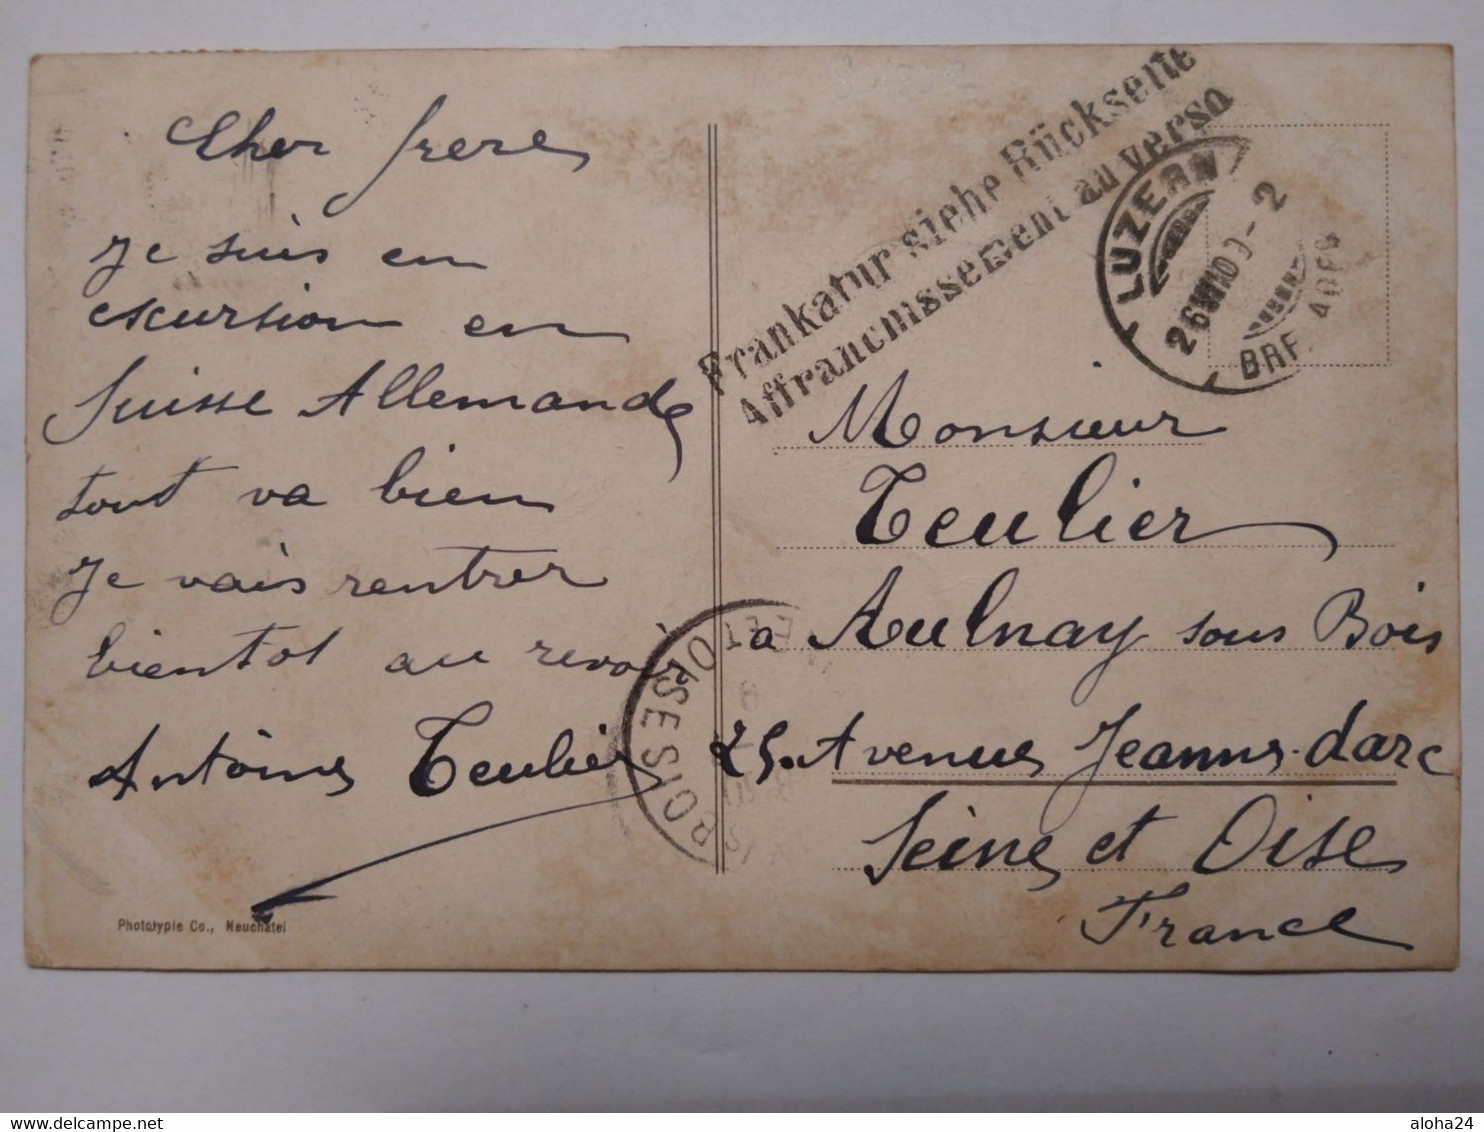 Cher frere
Je suis en
escursion en
Suisse Allemande
tout va bien
Je vais rentrer
bientot au revoir
Antoine Teulier
Phototypie Co., Neuchatel
Frankatur siehe Rückseite
Affranchissement au verso
LUZERN
BRF.
Monsieur
Teulier
a Aulnay sous Bois
25. Avenue Jeanne-darc
Seine et Oise
France
S BOIS
SE ET OISE
delcampe.net
aloha24